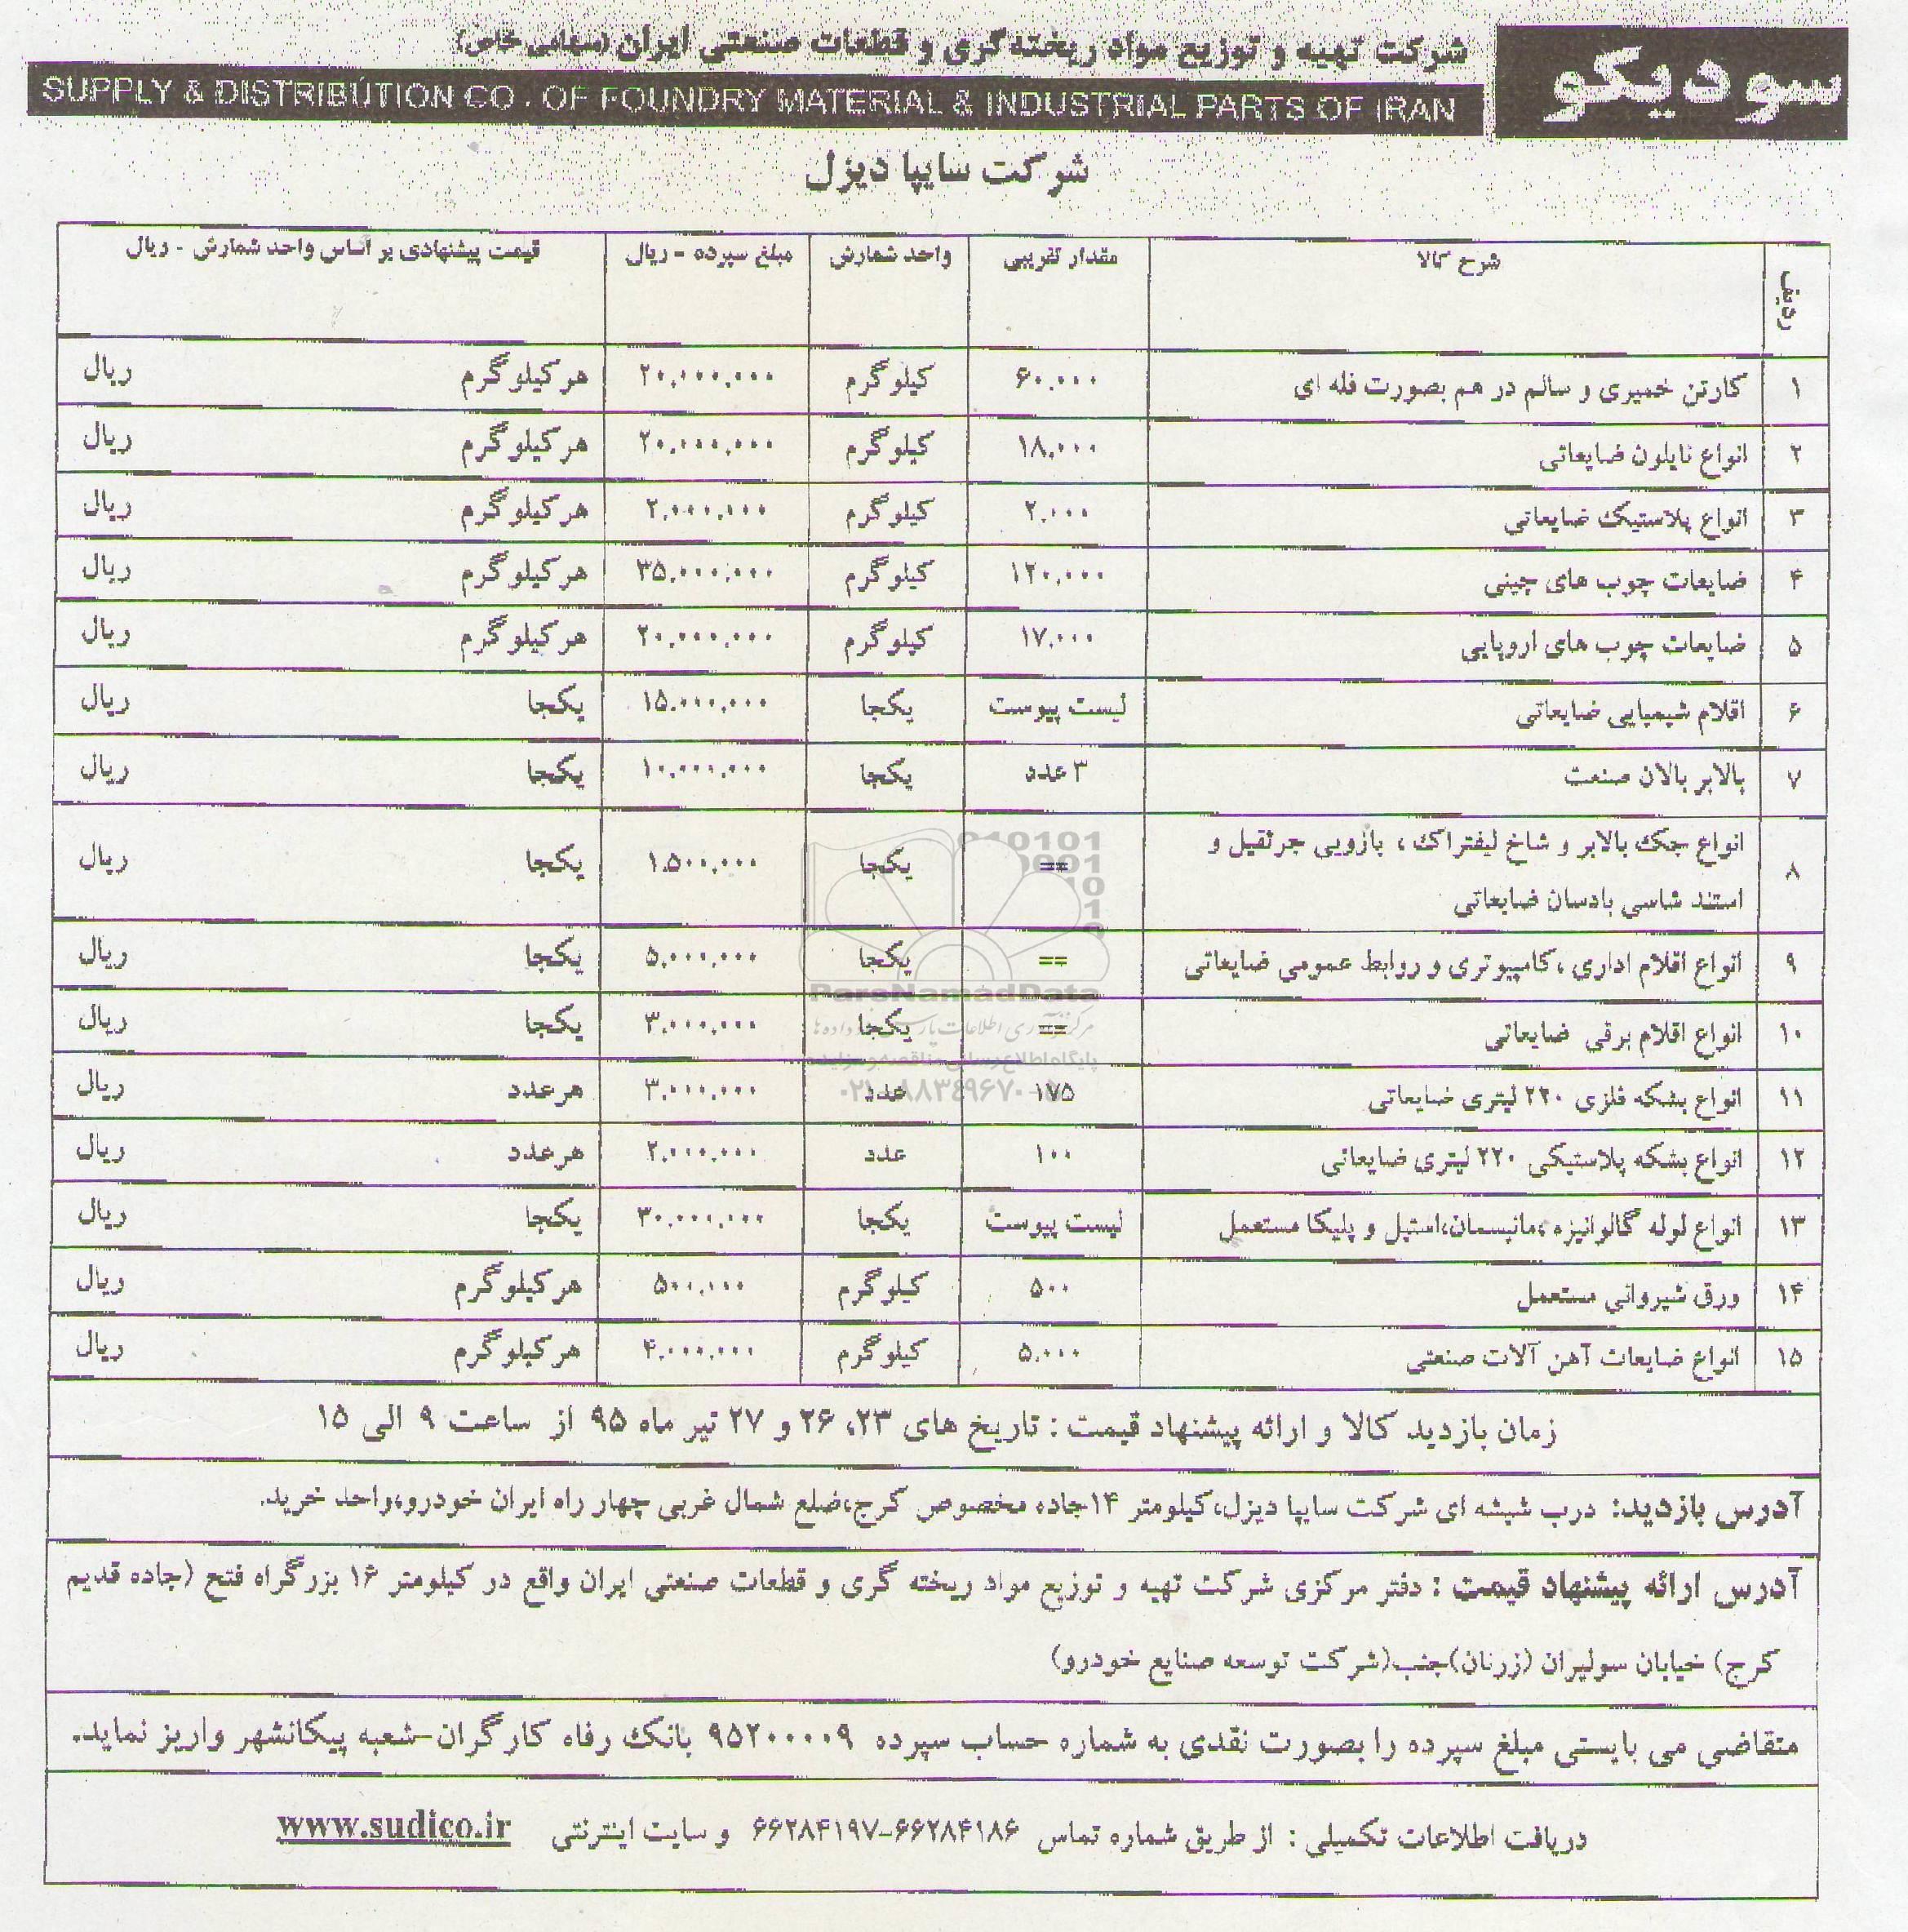 سودیکو
شرکت تهیه و توزیع مواد ریخته‌گری و قطعات صنعتی ایران (سهامی خاص)
SUPPLY & DISTRIBUTION CO . OF FOUNDRY MATERIAL & INDUSTRIAL PARTS OF IRAN
شرکت سایپا دیزل
ردیف شرح کالا مقدار تقریبی واحد شمارش مبلغ سپرده - ریال قیمت پیشنهادی بر اساس واحد شمارش - ریال
۱ کارتن خمیری و سالم در هم بصورت فله ای ۶۰.۰۰۰ کیلوگرم ۲۰.۰۰۰.۰۰۰ هرکیلوگرم ریال
۲ انواع نایلون ضایعاتی ۱۸.۰۰۰ کیلوگرم ۲۰.۰۰۰.۰۰۰ هرکیلوگرم ریال
۳ انواع پلاستیک ضایعاتی ۲.۰۰۰ کیلوگرم ۲.۰۰۰.۰۰۰ هرکیلوگرم ریال
۴ ضایعات چوب های چینی ۱۲۰.۰۰۰ کیلوگرم ۳۵.۰۰۰.۰۰۰ هرکیلوگرم ریال
۵ ضایعات چوب های اروپایی ۱۷.۰۰۰ کیلوگرم ۲۰.۰۰۰.۰۰۰ هرکیلوگرم ریال
۶ اقلام شیمیایی ضایعاتی لیست پیوست یکجا ۱۵.۰۰۰.۰۰۰ یکجا ریال
۷ بالابر بالان صنعت ۳ عدد یکجا ۱۰.۰۰۰.۰۰۰ یکجا ریال
۸ انواع جک بالابر و شاخ لیفتراک ، بازویی جرثقیل و == یکجا ۱.۵۰۰.۰۰۰ یکجا ریال
استند شاسی بادسان ضایعاتی
۹ انواع اقلام اداری ،کامپیوتری و روابط عمومی ضایعاتی == یکجا ۵.۰۰۰.۰۰۰ یکجا ریال
۱۰ انواع اقلام برقی ضایعاتی == یکجا ۳.۰۰۰.۰۰۰ یکجا ریال
۱۱ انواع بشکه فلزی ۲۲۰ لیتری ضایعاتی ۱۷۵ عدد ۳.۰۰۰.۰۰۰ هرعدد ریال
۱۲ انواع بشکه پلاستیکی ۲۲۰ لیتری ضایعاتی ۱۰۰ عدد ۲.۰۰۰.۰۰۰ هرعدد ریال
۱۳ انواع لوله گالوانیزه ،مانیسمان،استیل و پلیکا مستعمل لیست پیوست یکجا ۳۰.۰۰۰.۰۰۰ یکجا ریال
۱۴ ورق شیروانی مستعمل ۵۰۰ کیلوگرم ۵۰۰.۰۰۰ هرکیلوگرم ریال
۱۵ انواع ضایعات آهن آلات صنعتی ۵.۰۰۰ کیلوگرم ۴.۰۰۰.۰۰۰ هرکیلوگرم ریال
زمان بازدید کالا و ارائه پیشنهاد قیمت : تاریخ های ۲۳، ۲۶ و ۲۷ تیر ماه ۹۵ از ساعت ۹ الی ۱۵
آدرس بازدید: درب شیشه ای شرکت سایپا دیزل،کیلومتر ۱۴جاده مخصوص کرج،ضلع شمال غربی چهار راه ایران خودرو،واحد خرید.
آدرس ارائه پیشنهاد قیمت : دفتر مرکزی شرکت تهیه و توزیع مواد ریخته گری و قطعات صنعتی ایران واقع در کیلومتر ۱۶ بزرگراه فتح (جاده قدیم
کرج) خیابان سولیران (زرنان)جنب(شرکت توسعه صنایع خودرو)
متقاضی می بایستی مبلغ سپرده را بصورت نقدی به شماره حساب سپرده ۹۵۲۰۰۰۰۹ بانک رفاه کارگران-شعبه پیکانشهر واریز نماید.
دریافت اطلاعات تکمیلی : از طریق شماره تماس ۶۶۲۸۴۱۸۶-۶۶۲۸۴۱۹۷ و سایت اینترنتی www.sudico.ir
ParsNamadData